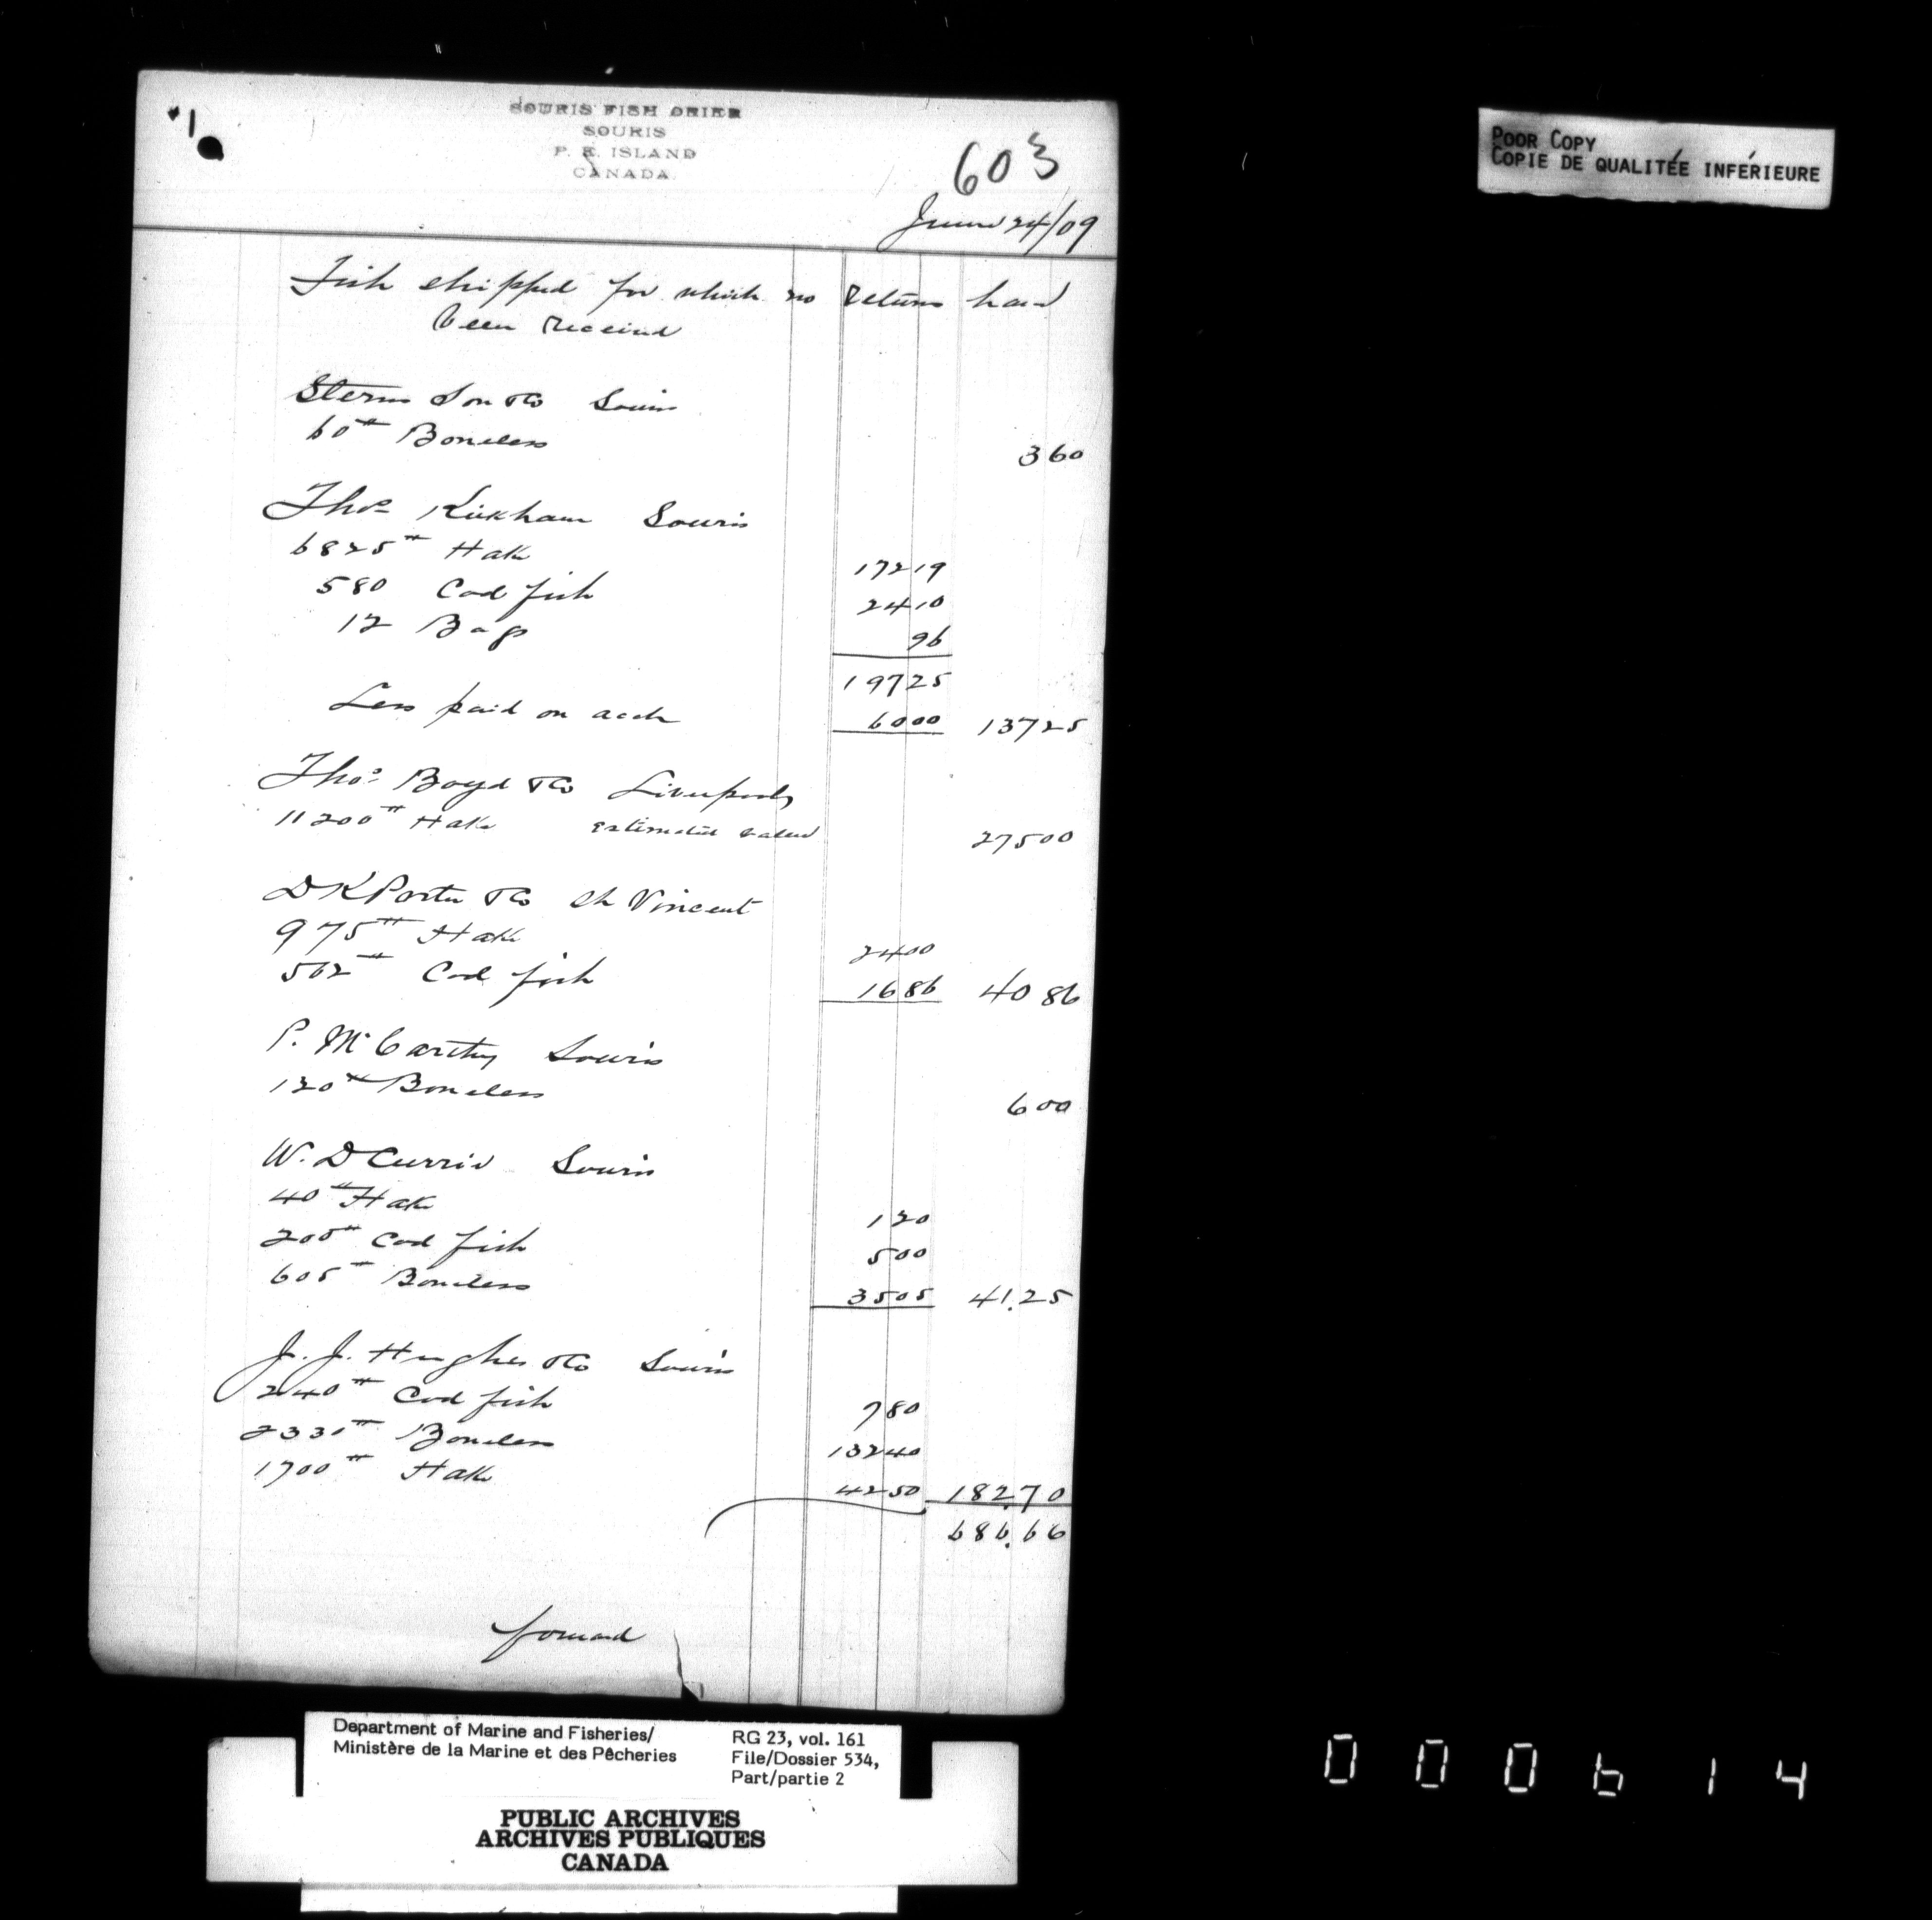 SOURIS FISH DRIER
SOURIS
P. E. ISLAND
CANADA
603
June 24/09
Fish shipped for which no Returns have
been Received
Sterns Son & Co Souris
60# Boneless 360
Thos Kickham Souris
6825# Hake 17219
580 Cod fish 2410
12 Bags 96
19725
Less paid on acct 6000 13725
Thos Boyd & Co Liverpool
11200# Hake estimated value 27500
D K Porter & Co St Vincent
975# Hake 2400
562# Cod fish 1686 4086
P. McCarthy Souris
120# Boneless 600
W. D Currie Souris
40# Hake 120
200# Cod fish 500
605# Boneless 3505 41.25
J. J. Hughes & Co Souris
240# Cod fish 780
Boneless 13240
1700# Hake 4250 182.70
686.66
forward
POOR COPY
COPIE DE QUALITÉE INFÉRIEURE
Department of Marine and Fisheries/
Ministère de la Marine et des Pêcheries
RG 23, vol. 161
File/Dossier 534,
Part/partie 2
PUBLIC ARCHIVES
ARCHIVES PUBLIQUES
CANADA
000614